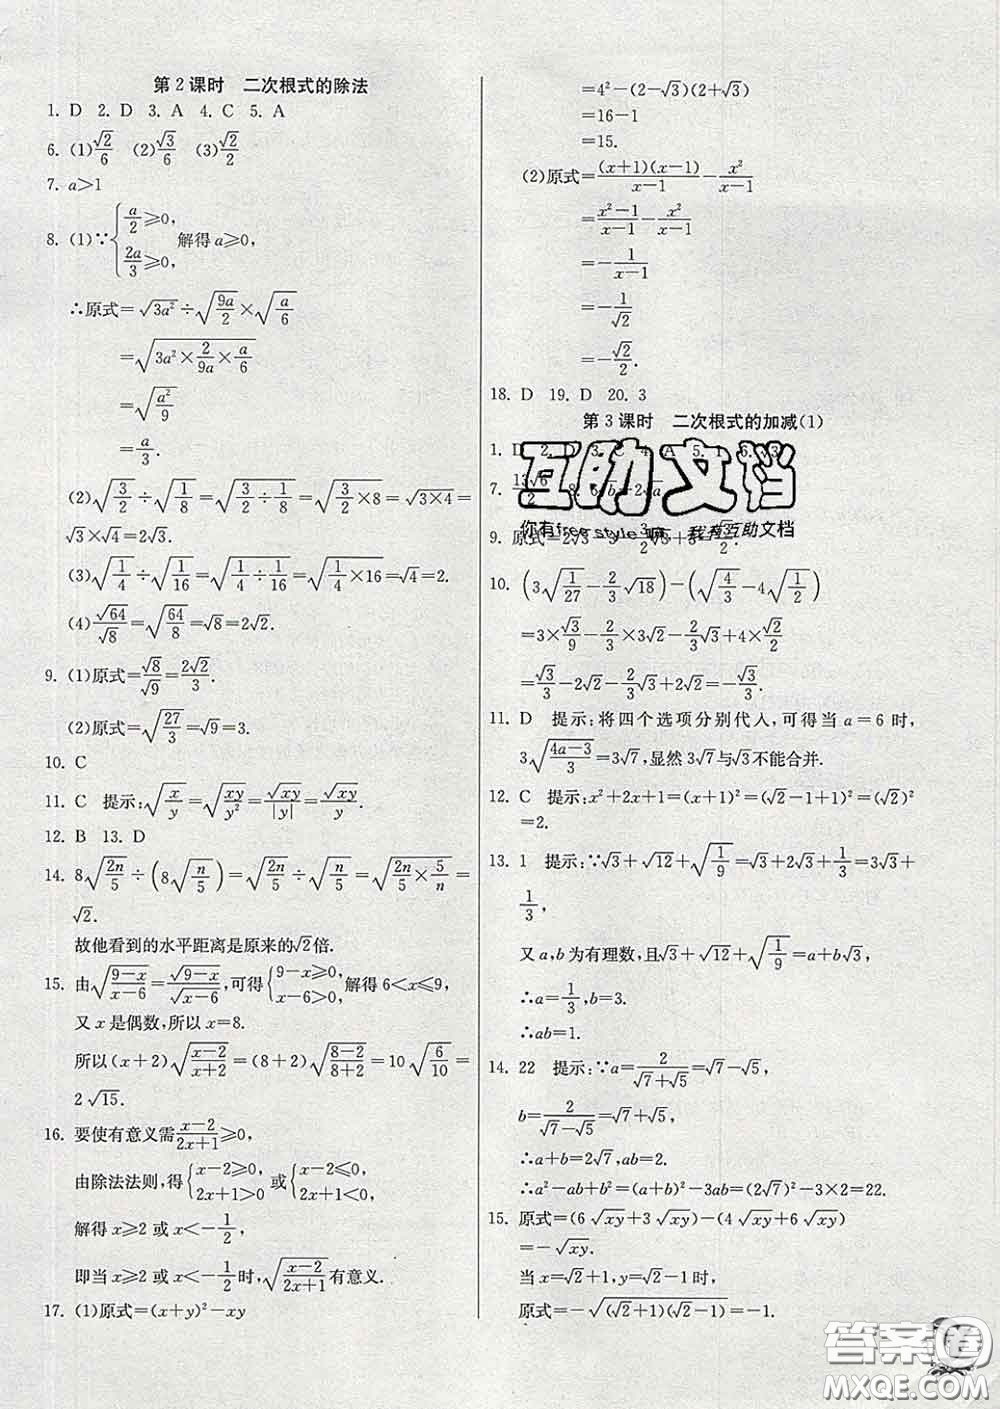 第2课时 二次根式的除法
1. D 2. D 3. A 4. C 5. A
6. (1)√2/6 (2)√3/6 (3)√2/2
7. a>1
8. (1)∵{a/2≥0, 2a/3≥0, 解得a≥0,
∴原式=√(3a²)÷√(9a/2)×√(a/6)
=√(3a²×2/(9a)×a/6)
=√(a²/9)
=a/3.
(2)√(3/2)÷√(1/8)=√(3/2÷1/8)=√(3/2×8)=√(3×4)=
√3×√4=2√3.
(3)√(1/4)÷√(1/16)=√(1/4÷1/16)=√(1/4×16)=√4=2.
(4)√64/√8=√(64/8)=√8=2√2.
9. (1)原式=√8/√9=2√2/3.
(2)原式=√(27/3)=√9=3.
10. C
11. C 提示:√(x/y)=√(xy/y²)=√(xy)/|y|=√(xy)/y.
12. B 13. D
14. 8√(2n/5)÷(8√(n/5))=√(2n/5)÷√(n/5)=√(2n/5×5/n)=
√2.
故他看到的水平距离是原来的√2倍.
15. 由√((9-x)/(x-6))=√(9-x)/√(x-6),可得{9-x≥0, x-6>0, 解得6<x≤9,
又x是偶数,所以x=8.
所以(x+2)√((x-2)/(x+2))=(8+2)√((8-2)/(8+2))=10√(6/10)=
2√15.
16. 要使有意义需(x-2)/(2x+1)≥0,
由除法法则,得{x-2≥0, 2x+1>0 或{x-2≤0, 2x+1<0,
解得x≥2或x<-1/2,
即当x≥2或x<-1/2时,√((x-2)/(2x+1))有意义.
17. (1)原式=(x+y)²-xy
=4²-(2-√3)(2+√3)
=16-1
=15.
(2)原式=(x+1)(x-1)/(x-1)-x²/(x-1)
=(x²-1)/(x-1)-x²/(x-1)
=-1/(x-1)
=-1/√2
=-√2/2.
18. D 19. D 20. 3
第3课时 二次根式的加减(1)
1. D 2. 3. C 4. A 5. 1 6. √3
7. 13√6/2 8.
9. 原式=2√3
10. (3√(1/27)-2/3√18)-(√(4/3)-4√(1/2))
=3×√3/9-2/3×3√2-2/3√3+4×√2/2
=√3/3-2√2-2/3√3+2√2=-√3/3.
11. D 提示:将四个选项分别代入,可得当a=6时,
3√((4a-3)/3)=3√7,显然3√7与√5不能合并.
12. C 提示:x²+2x+1=(x+1)²=(√2-1+1)²=(√2)²
=2.
13. 1 提示:∵√3+√12+√(1/9)=√3+2√3+1/3=3√3+
1/3,
又a,b为有理数,且√3+√12+√(1/9)=a+b√3,
∴a=1/3,b=3.
∴ab=1.
14. 22 提示:∵a=2/(√7+√5)=√7-√5,
b=2/(√7-√5)=√7+√5,
∴a+b=2√7,ab=2.
∴a²-ab+b²=(a+b)²-3ab=(2√7)²-3×2=22.
15. 原式=(6√(xy)+3√(xy))-(4√(xy)+6√(xy))
=-√(xy).
当x=√2+1,y=√2-1时,
原式=-√((√2+1)(√2-1))=-1.
互助文档
你有free style嘛 我有互助文档
答案卷
MXQE.COM